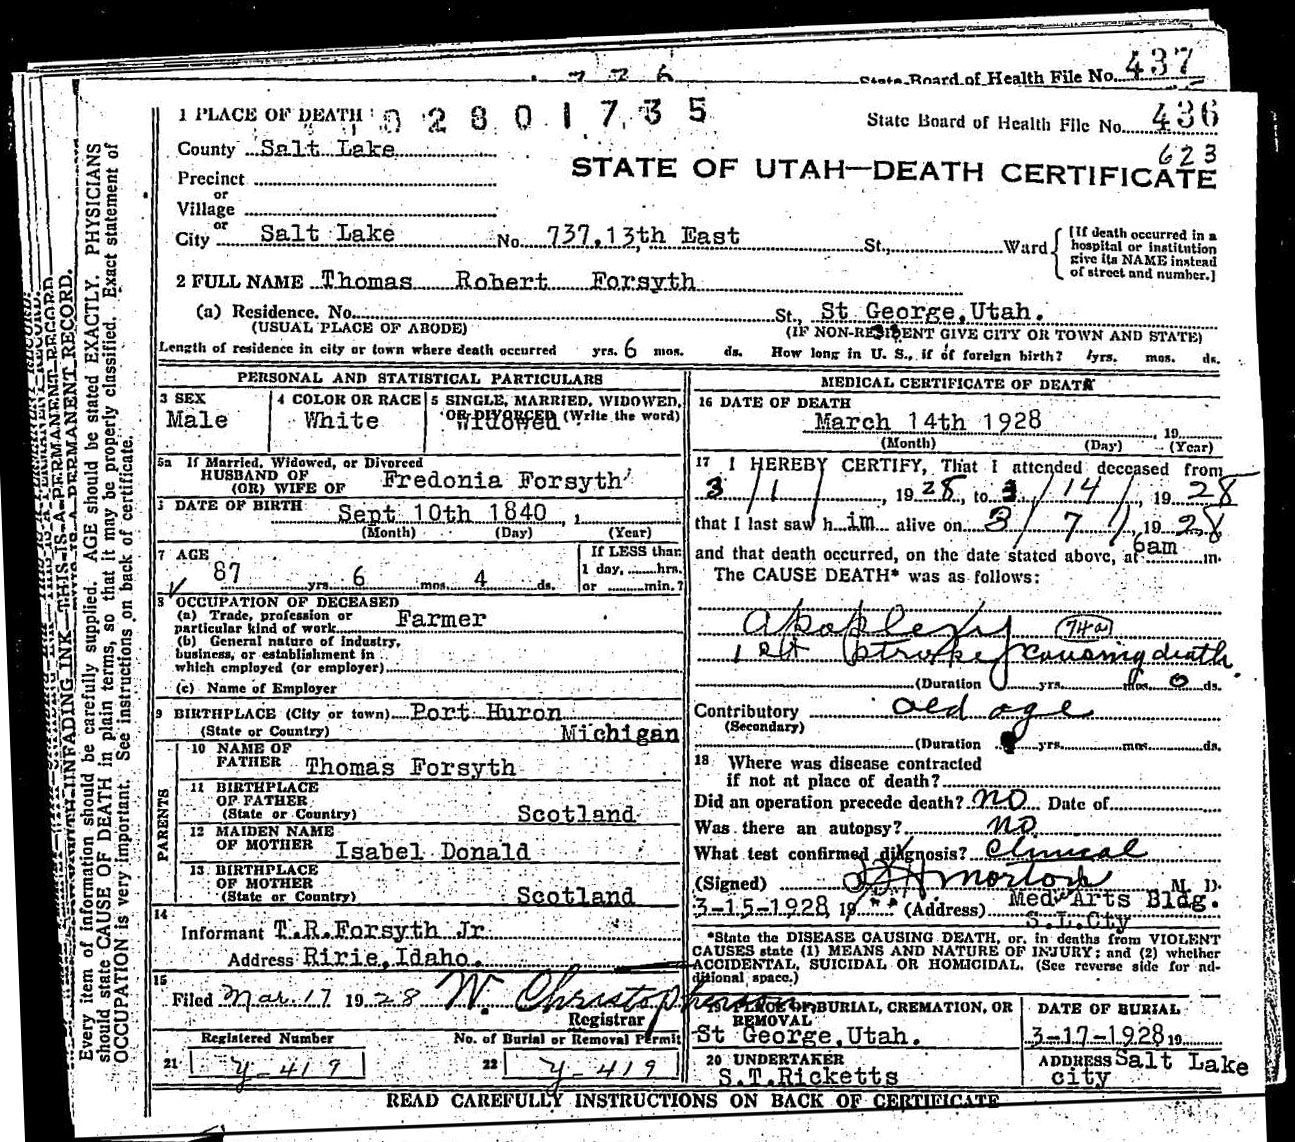 State Board of Health File No. 437
State Board of Health File No. 436
623
1 PLACE OF DEATH 02801735
STATE OF UTAH—DEATH CERTIFICATE
County Salt Lake
Precinct
or
Village
or
City Salt Lake No. 737.13th East St., Ward
[If death occurred in a
hospital or institution
give its NAME instead
of street and number.]
2 FULL NAME Thomas Robert Forsyth
(a) Residence. No. St., St George,Utah.
(USUAL PLACE OF ABODE) (IF NON-RESIDENT GIVE CITY OR TOWN AND STATE)
Length of residence in city or town where death occurred yrs. 6 mos. ds. How long in U. S., if of foreign birth? yrs. mos. ds.
PERSONAL AND STATISTICAL PARTICULARS
3 SEX
Male
4 COLOR OR RACE
White
5 SINGLE, MARRIED, WIDOWED,
OR DIVORCED (Write the word)
Widowed
5a If Married, Widowed, or Divorced
HUSBAND OF
(OR) WIFE OF Fredonia Forsyth
DATE OF BIRTH Sept 10th 1840
(Month) (Day) (Year)
7 AGE
87 yrs. 6 mos. 4 ds.
If LESS than
1 day, hrs.
or min.?
8 OCCUPATION OF DECEASED
(a) Trade, profession or
particular kind of work Farmer
(b) General nature of industry,
business, or establishment in
which employed (or employer)
(c) Name of Employer
9 BIRTHPLACE (City or town) Port Huron
(State or Country) Michigan
PARENTS
10 NAME OF
FATHER Thomas Forsyth
11 BIRTHPLACE
OF FATHER
(State or Country) Scotland
12 MAIDEN NAME
OF MOTHER Isabel Donald
13 BIRTHPLACE
OF MOTHER
(State or Country) Scotland
14
Informant T.R.Forsyth Jr
Address Ririe,Idaho.
15
Filed Mar. 17 1928 W. Christopherson
Registrar
Registered Number No. of Burial or Removal Permit
21 y-419 22 y-419
MEDICAL CERTIFICATE OF DEATH
16 DATE OF DEATH
March 14th 1928 , 19
(Month) (Day) (Year)
17 I HEREBY CERTIFY, That I attended deceased from
3/1/, 1928, to 3/14/, 1928
that I last saw him alive on 3/7/, 1928
and that death occurred, on the date stated above, at 6am m.
The CAUSE DEATH* was as follows:
apoplexy 74a
1st stroke causing death
(Duration yrs. mos. 0 ds.
Contributory old age
(Secondary)
(Duration yrs. mos. ds.
18 Where was disease contracted
if not at place of death?
Did an operation precede death? no Date of
Was there an autopsy? no
What test confirmed diagnosis? Clinical
(Signed) M. D.
3-15-1928, 19 (Address) Med Arts Bldg.
S.L.Cty
*State the DISEASE CAUSING DEATH, or, in deaths from VIOLENT
CAUSES state (1) MEANS AND NATURE OF INJURY; and (2) whether
ACCIDENTAL, SUICIDAL OR HOMICIDAL. (See reverse side for ad-
ditional space.)
19 PLACE OF BURIAL, CREMATION, OR
REMOVAL
St George,Utah.
DATE OF BURIAL
3-17-1928 19
20 UNDERTAKER
S.T.Ricketts
ADDRESS Salt Lake
city
READ CAREFULLY INSTRUCTIONS ON BACK OF CERTIFICATE
UNFADING INK—THIS IS A PERMANENT RECORD.
Every item of information should be carefully supplied. AGE should be stated EXACTLY. PHYSICIANS
should state CAUSE OF DEATH in plain terms, so that it may be properly classified. Exact statement of
OCCUPATION is very important. See instructions on back of certificate.